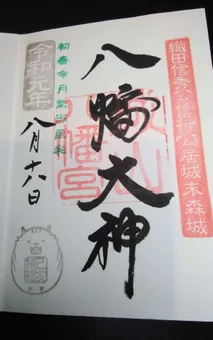 織田信秀公信行公居城末森城
八幡大神
城山
八幡宮
初春令月気淑風和
令和元年
八月十六日